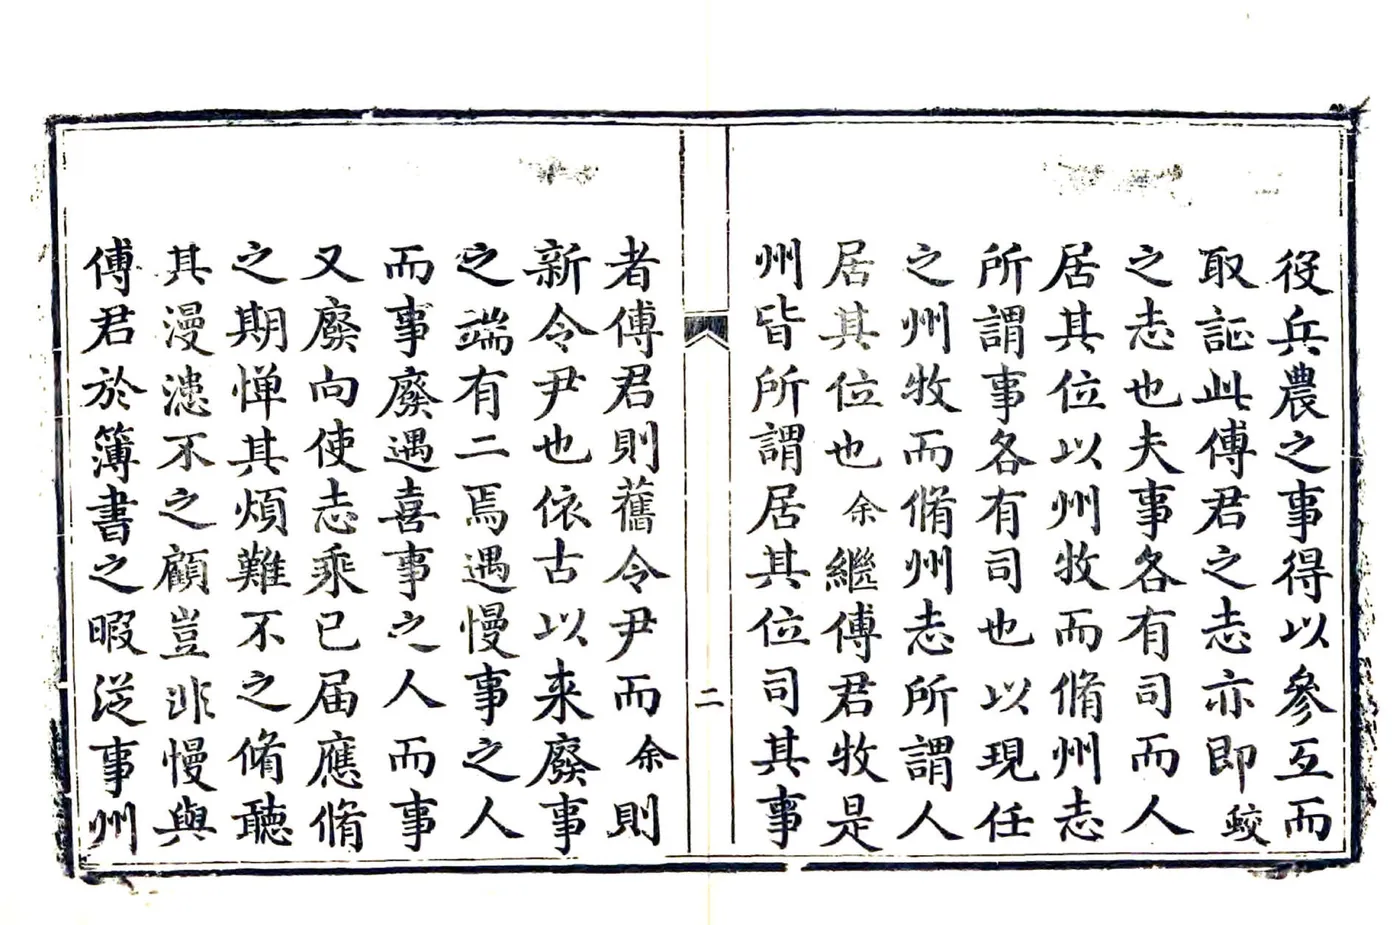 役兵農之事得以參互而
取証此傅君之志亦即蛟
之志也夫事各有司而人
居其位以州牧而脩州志
所謂事各有司也以現任
之州牧而脩州志所謂人
居其位也余繼傅君牧是
州皆所謂居其位司其事
二
者傅君則舊令尹而余則
新令尹也依古以来廢事
之端有二焉遇慢事之人
而事廢遇喜事之人而事
又廢向使志乘已届應脩
之期惮其煩難不之脩聽
其漫漶不之顧豈非慢與
傅君於簿書之暇従事州